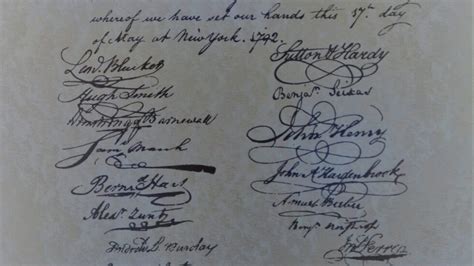 whereof we have set our hands this 17th day
of May at New York. 1792.
Leod. Bleecker
Hugh Smith
Armstrong & Barnewall
Sam March
Bernd. Hart
Alexr. Zuntz
Andrew D. Barclay
Sutton & Hardy
Benja. Seixas
John Henry
John A. Hardenbrook
Amurt Beebee
Benj. Winthrop
Jno Ferrers